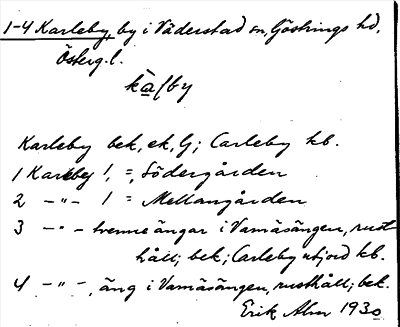 1-4 Karleby, by i Väderstad sn, Göstrings hd,
Österg. l.
kàlby
Karleby bek, ek, G; Carleby kb.
1 Karleby 1, =, Södergården
2 -"- 1 = Mellangården
3 -"- trenne ängar i Vamäsängen, rust
håll; bek; Carleby utjord kb.
4 -"-, äng i Vamäsängen, rusthåll; bek.
Erik Abm 1930